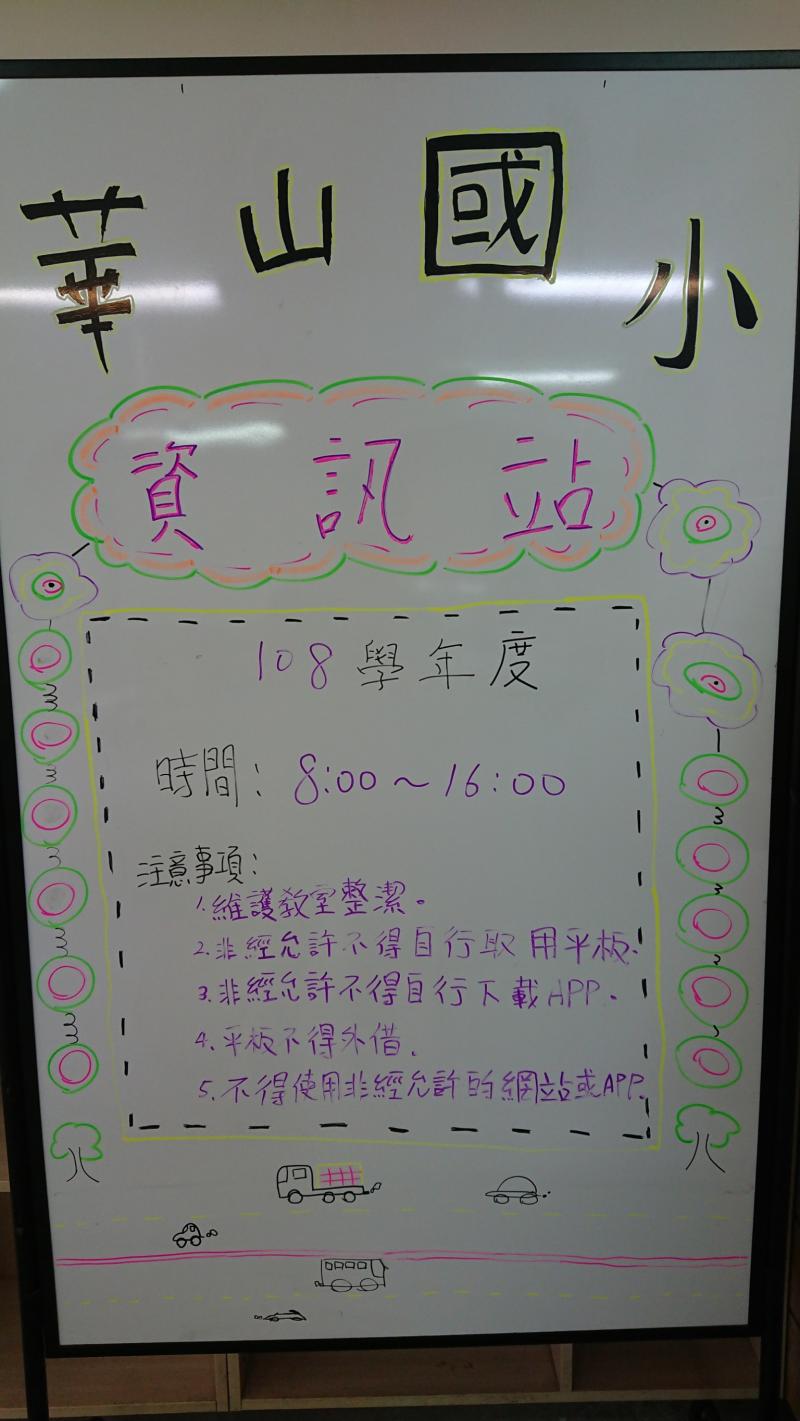 華山國小
資訊站
108學年度
時間：8:00～16:00
注意事項：
1.維護教室整潔。
2.非經允許不得自行取用平板.
3.非經允許不得自行下載APP.
4.平板不得外借.
5.不得使用非經允許的網站或APP.